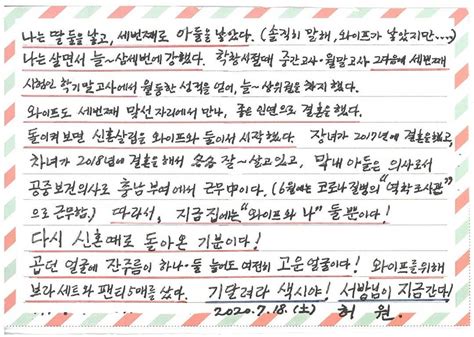 나는 딸 둘을 낳고, 세번째로 아들을 낳았다. (솔직히 말해, 와이프가 낳았지만...)
나는 살면서 늘~ 삼세번에 강했다. 학창시절때 중간고사·월말고사 그다음에 세번째
시험인 학기말고사에서 월등한 성적을 얻어, 늘~ 상위권을 차지했다.
와이프도 세번째 맞선자리에서 만나, 좋은 인연으로 결혼을 했다.
돌이켜보면 신혼살림을 와이프와 둘이서 시작했다. 장녀가 2017년에 결혼을했고,
차녀가 2018년에 결혼을 해서 슝슝 잘~살고있고, 막내 아들은 의사로서
공중보건의사로 충남 부여에서 근무中이다. (6월에는 코로나질병의 "역학조사관"
으로 근무함.) 따라서, 지금 집에는 "와이프와 나" 둘 뿐이다!
다시 신혼때로 돌아온 기분이다!
곱던 얼굴에 잔주름이 하나·둘 늘어도 여전히 고운얼굴이다! 와이프를위해
브라세트와 팬티5매를 샀다. 기달려라 색시야! 서방님이 지금간다!
2020.7.18.(土) 허 원.